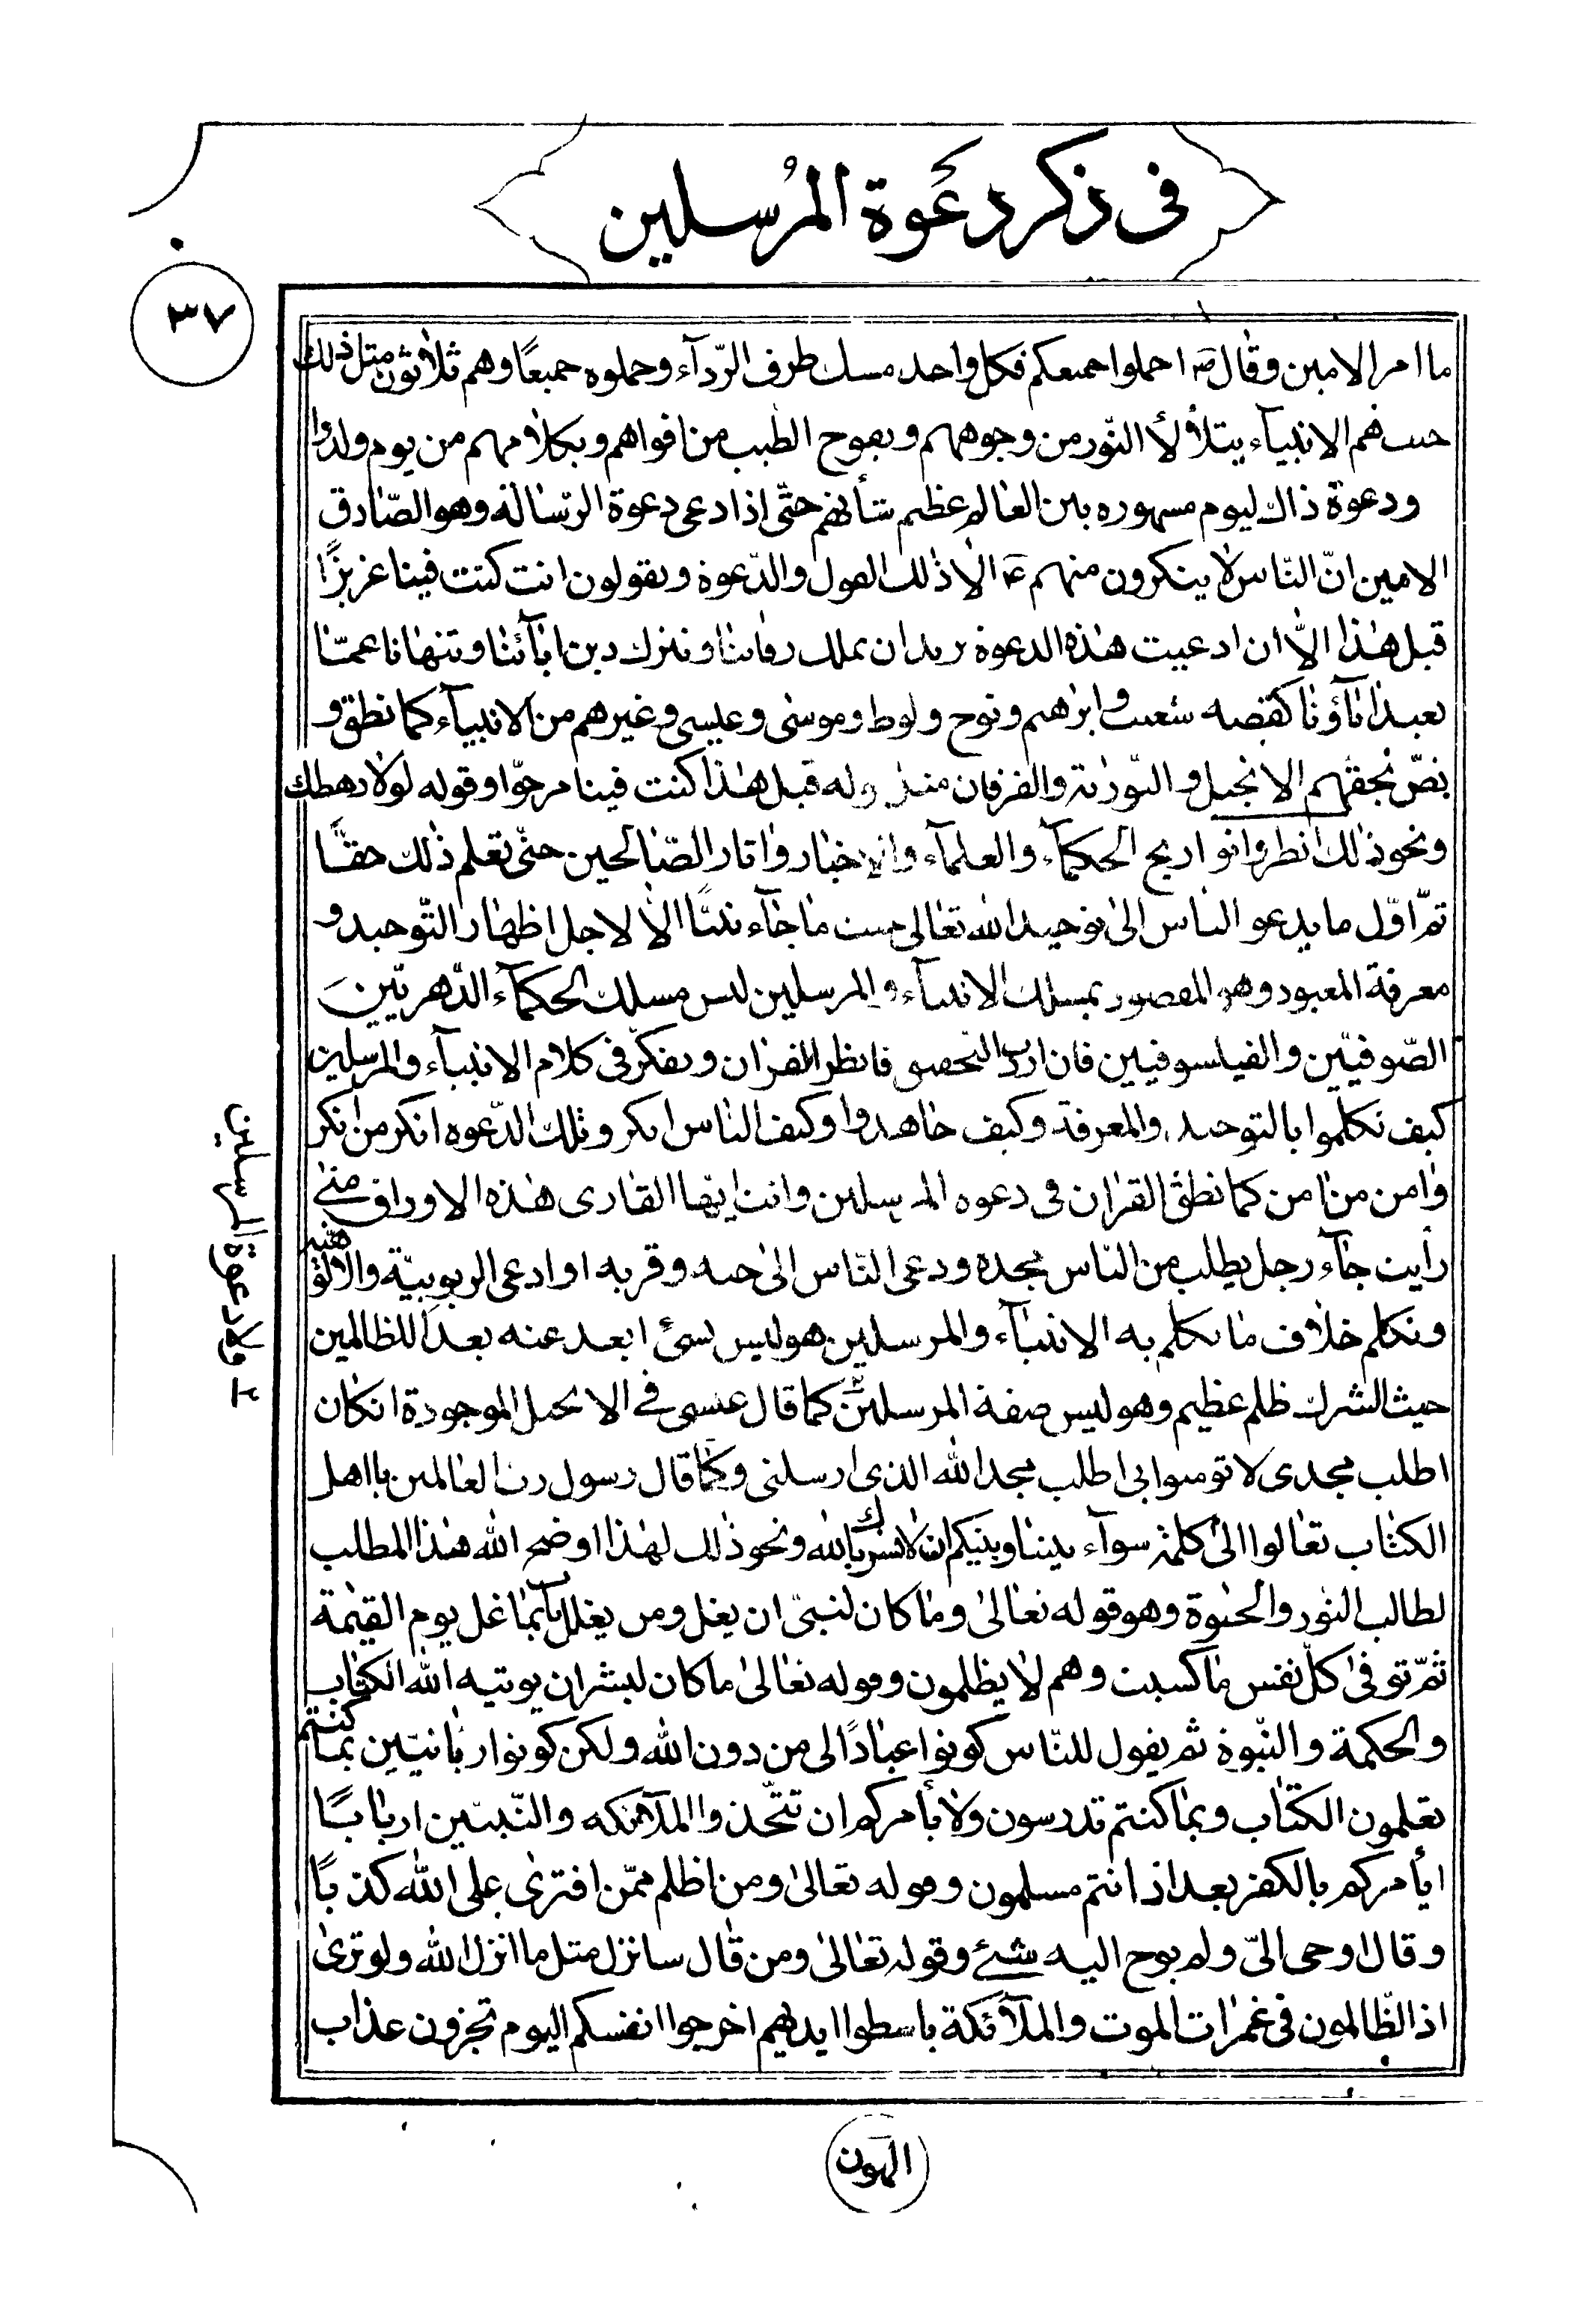 فى ذكر دعوة المرسلين
٣٧
ما امر الامين وقال ص احملوا جميعكم فكل واحد مسك طرف الرّدآء وحملوه جميعًا وهم ثلاثون مثل ذلك
حسبهم الانبيآء يتلأ لأ النّور من وجوههم ويفوح الطيب من افواههم وبكلامهم من يوم ولدوا
ودعوة ذاك ليوم مشهوره بين العالم عظيم شأنهم حتّى اذا دعى دعوة الرّسالة وهو الصّادق
الامين انّ النّاس لا ينكرون منهم ع الّا ذلك القول والدّعوة ويقولون انت كنت فينا عزيزًا
قبل هذا الّا ان ادعيت هذه الدعوة تريد ان تملك رقابنا ونترك دين اٰبآئنا وتنهانا عمّا
يعبد اٰبآؤنا كقصه شعيب وابرهيم ونوح ولوط وموسى وعيسى وغيرهم من الانبيآء كما نطق و
نصّ بحقّهم الانجيل والتّورٰية والفرقان قبل هذا كنت فينا مرجوّا وقوله لولا رهطك
ونحو ذلك انظروا تواريخ الحكمآء والعلمآء واٰثار الصّالحين حتّى تعلم ذلك حقًّا
ثمّ اوّل ما يدعو الناس الى توحيد الله تعالى حيث ما جآء نبيًّا الّا لاجل اظهار التّوحيد و
معرفة المعبود وهو المقصود بمسلك الانبيآء والمرسلين ليس مسلك الحكمآء الدّهريّين
الصّوفيّين والفيلسوفيين فان اردت التحقيق فانظر القرٰان وتفكّر فى كلام الانبيآء والمرسلين
كيف تكلّموا بالتوحيد والمعرفة وكيف جاهدوا وكيف الناس انكر وتلك الدّعوه انكر من انكر
واٰمن من اٰمن كما نطق القرٰان فى دعوه المرسلين وانت ايّها القارى هذه الاوراق متى
رأيت جآء رجل يطلب من النّاس مجده ودعى النّاس الى حبه وقربه او ادعى الربوبيّة والالوهيّة
وتكلم خلاف ما تكلم به الانبيآء والمرسلين هو ليس بشئ ابعد عنه بعدًا للظالمين
حيث الشرك ظلم عظيم وهو ليس صفة المرسلين كما قال عيسى فى الانجيل الموجودة انكان
اطلب مجدى لا تومنوا بى اطلب مجد الله الذى ارسلنى وكما قال رسول ربّ العالمين يا اهل
الكتٰاب تعٰالوا الى كلمة سوآء بيننا وبينكم ان لا نشرك بالله ونحو ذلك لهذا اوضح الله هذا المطلب
لطالب النور والحيٰوة وهو قوله تعالى وما كان لنبىّ ان يغل ومن يغلل يأت بما غل يوم القيٰمة
ثمّ توفى كلّ نفس ما كسبت وهم لا يظلمون وقوله تعالى ما كان لبشر ان يوتيه الله الكتٰاب
والحكمة والنّبوة ثم يقول للنّاس كونوا عبادًا لى من دون الله ولكن كونوا ربّانيّين بما كنتم
تعلمون الكتٰاب وبما كنتم تدرسون ولا يأمركم ان تتّخذوا الملآئكه والنّبيّين اربابًا
ايأمركم بالكفر بعد اذ انتم مسلمون وقوله تعالى ومن اظلم ممّن افترى على الله كذبًا
وقال اوحى الىّ ولم يوح اليه شئ وقوله تعالى ومن قال سانزل مثل ما انزل الله ولو ترى
اذ الظّالمون فى غمرات الموت والملآئكة باسطوا ايديهم اخرجوا انفسكم اليوم تجزون عذاب
الهون
٢ ولا دعوة المرسلين